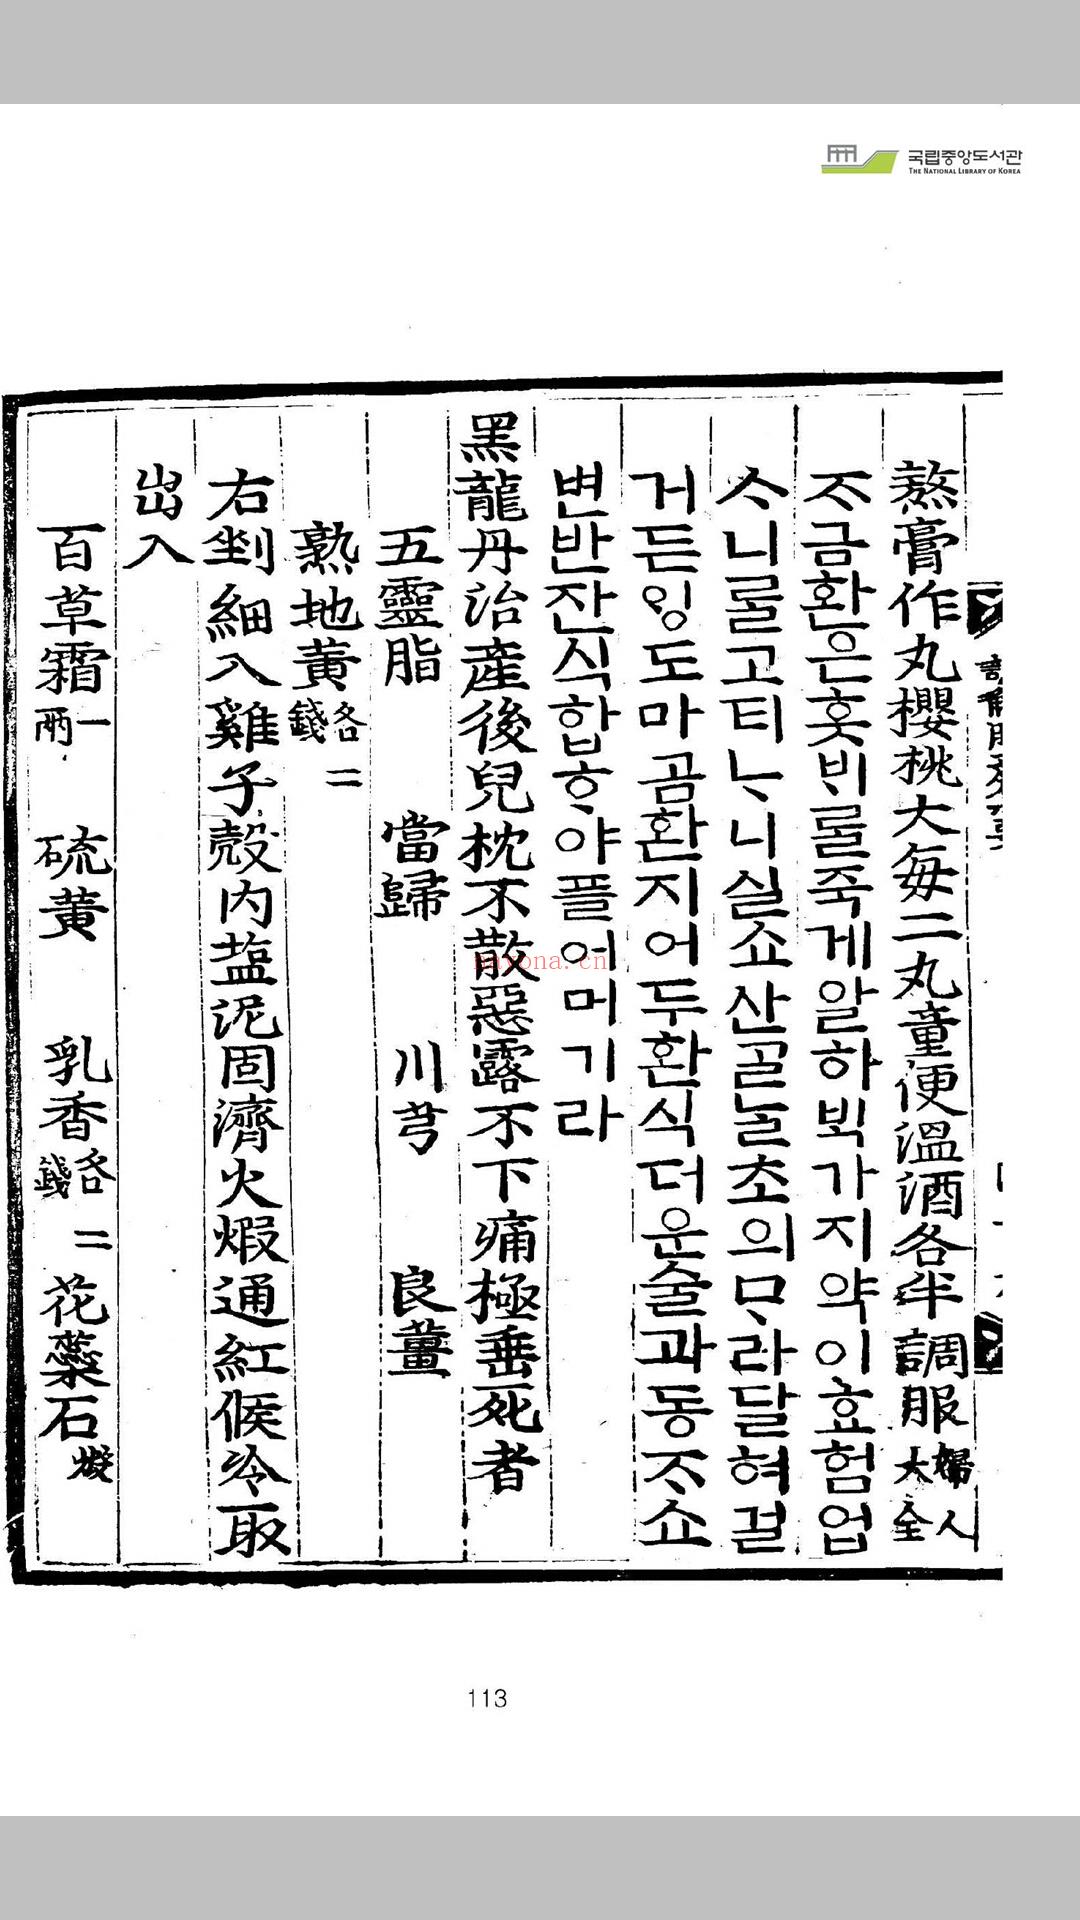 국립중앙도서관
THE NATIONAL LIBRARY OF KOREA
熬膏作丸櫻桃大每二丸童便溫酒各半調服婦人大全
ᄌᆞ금환은훗ᄇᆡ룰죽게알하ᄇᆡᆨ가지약이효험업
ᄉᆞ니룰고티ᄂᆞ니실쇼산골눌초의ᄆᆞ라달혀걸
거든잉도마곰환지어두환식더운술과동ᄌᆞ쇼
변반잔식합ᄒᆞ야플어머기라
黑龍丹治産後兒枕不散惡露不下痛極垂死者
五靈脂 當歸 川芎 良薑
熟地黃各二錢
右剉細入雞子殼内塩泥固濟火煆通紅候冷取
出入
百草霜一兩 硫黃 乳香各二錢 花蘂石煆
nayona.cn
113